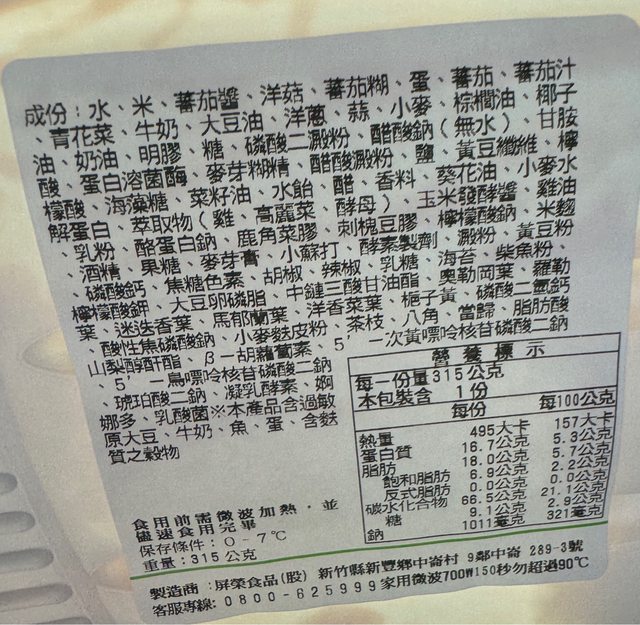 成份：水、米、蕃茄醬、洋菇、蕃茄糊、蛋、蕃茄、蕃茄汁
、青花菜、牛奶、大豆油、洋蔥、蒜、小麥、棕櫚油、椰子
油、奶油、明膠、糖、磷酸二澱粉、醋酸鈉（無水）、甘胺
酸、蛋白溶菌酶、麥芽糊精、醋酸澱粉、鹽、黃豆纖維、檸
檬酸、海藻糖、菜籽油、水飴、醋、香料、葵花油、小麥水
解蛋白、萃取物（雞、高麗菜、酵母）、玉米發酵醬、雞油
、乳粉、酪蛋白鈉、鹿角菜膠、刺槐豆膠、檸檬酸鈉、米麴
、酒精、果糖、麥芽膏、小蘇打、酵素製劑、澱粉、黃豆粉
、磷酸鈣、焦糖色素、胡椒、辣椒、乳糖、海苔、柴魚粉、
檸檬酸鉀、大豆卵磷脂、中鏈三酸甘油酯、奧勒岡葉、羅勒
葉、迷迭香葉、馬郁蘭葉、洋香菜葉、梔子黃、磷酸二氫鈣
、酸性焦磷酸鈉、小麥麩皮粉、茶枝、八角、當歸、脂肪酸
山梨醇酐酯、β-胡蘿蔔素、5'-次黃嘌呤核苷磷酸二鈉
、5'-鳥嘌呤核苷磷酸二鈉
、琥珀酸二鈉、凝乳酵素、婀
娜多、乳酸菌※本產品含過敏
原大豆、牛奶、魚、蛋、含麩
質之穀物
營養標示
每一份量315公克
本包裝含 1份
每份 每100公克
熱量 495大卡 157大卡
蛋白質 16.7公克 5.3公克
脂肪 18.0公克 5.7公克
飽和脂肪 6.9公克 2.2公克
反式脂肪 0.0公克 0.0公克
碳水化合物 66.5公克 21.1公克
糖 9.1公克 2.9公克
鈉 1011毫克 321毫克
食用前需微波加熱，並
儘速食用完畢
保存條件：0-7℃
重量：315公克
製造商：屏榮食品(股) 新竹縣新豐鄉中崙村 9鄰中崙 289-3號
客服專線：0800-625999家用微波700W150秒勿超過90℃